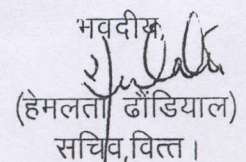 भवदीय,
(हेमलता ढौंडियाल)
सचिव,वित्त।